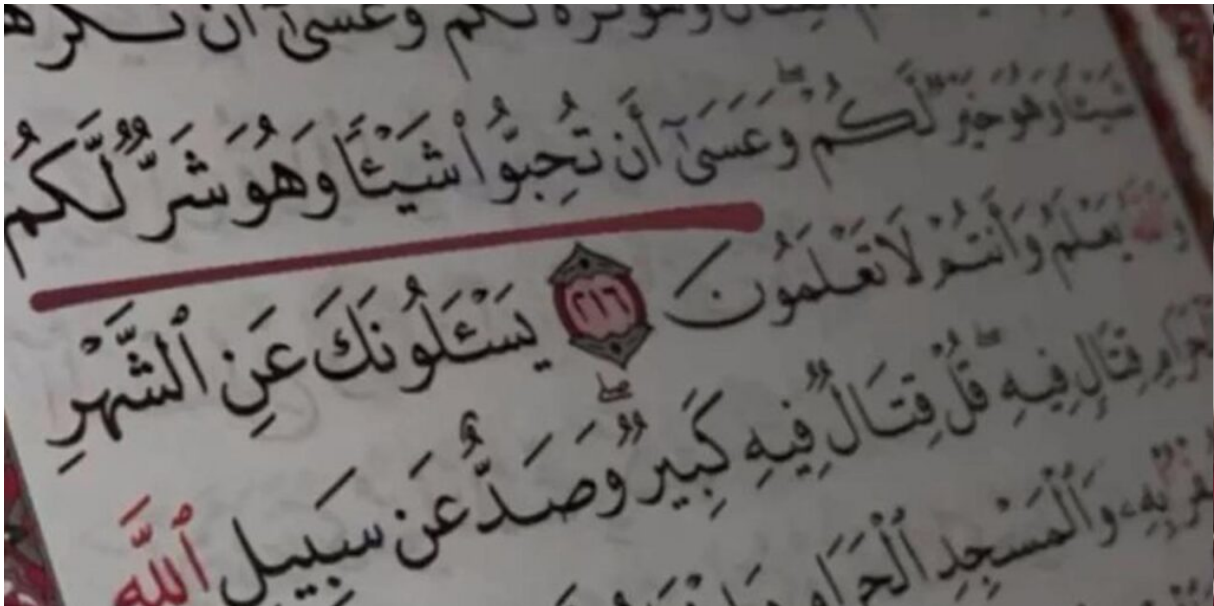 وَهُوَ كُرْهٌ لَّكُمْ وَعَسَىٰٓ أَن تَكْرَهُ
شَيْـًٔا وَهُوَ خَيْرٌ لَّكُمْ ۖ وَعَسَىٰٓ أَن تُحِبُّوا۟ شَيْـًٔا وَهُوَ شَرٌّ لَّكُمْ
وَٱللَّهُ يَعْلَمُ وَأَنتُمْ لَا تَعْلَمُونَ ٢١٦ يَسْـَٔلُونَكَ عَنِ ٱلشَّهْرِ
ٱلْحَرَامِ قِتَالٍ فِيهِ ۖ قُلْ قِتَالٌ فِيهِ كَبِيرٌ ۖ وَصَدٌّ عَن سَبِيلِ ٱللَّهِ
وَٱلْمَسْجِدِ ٱلْحَرَامِ